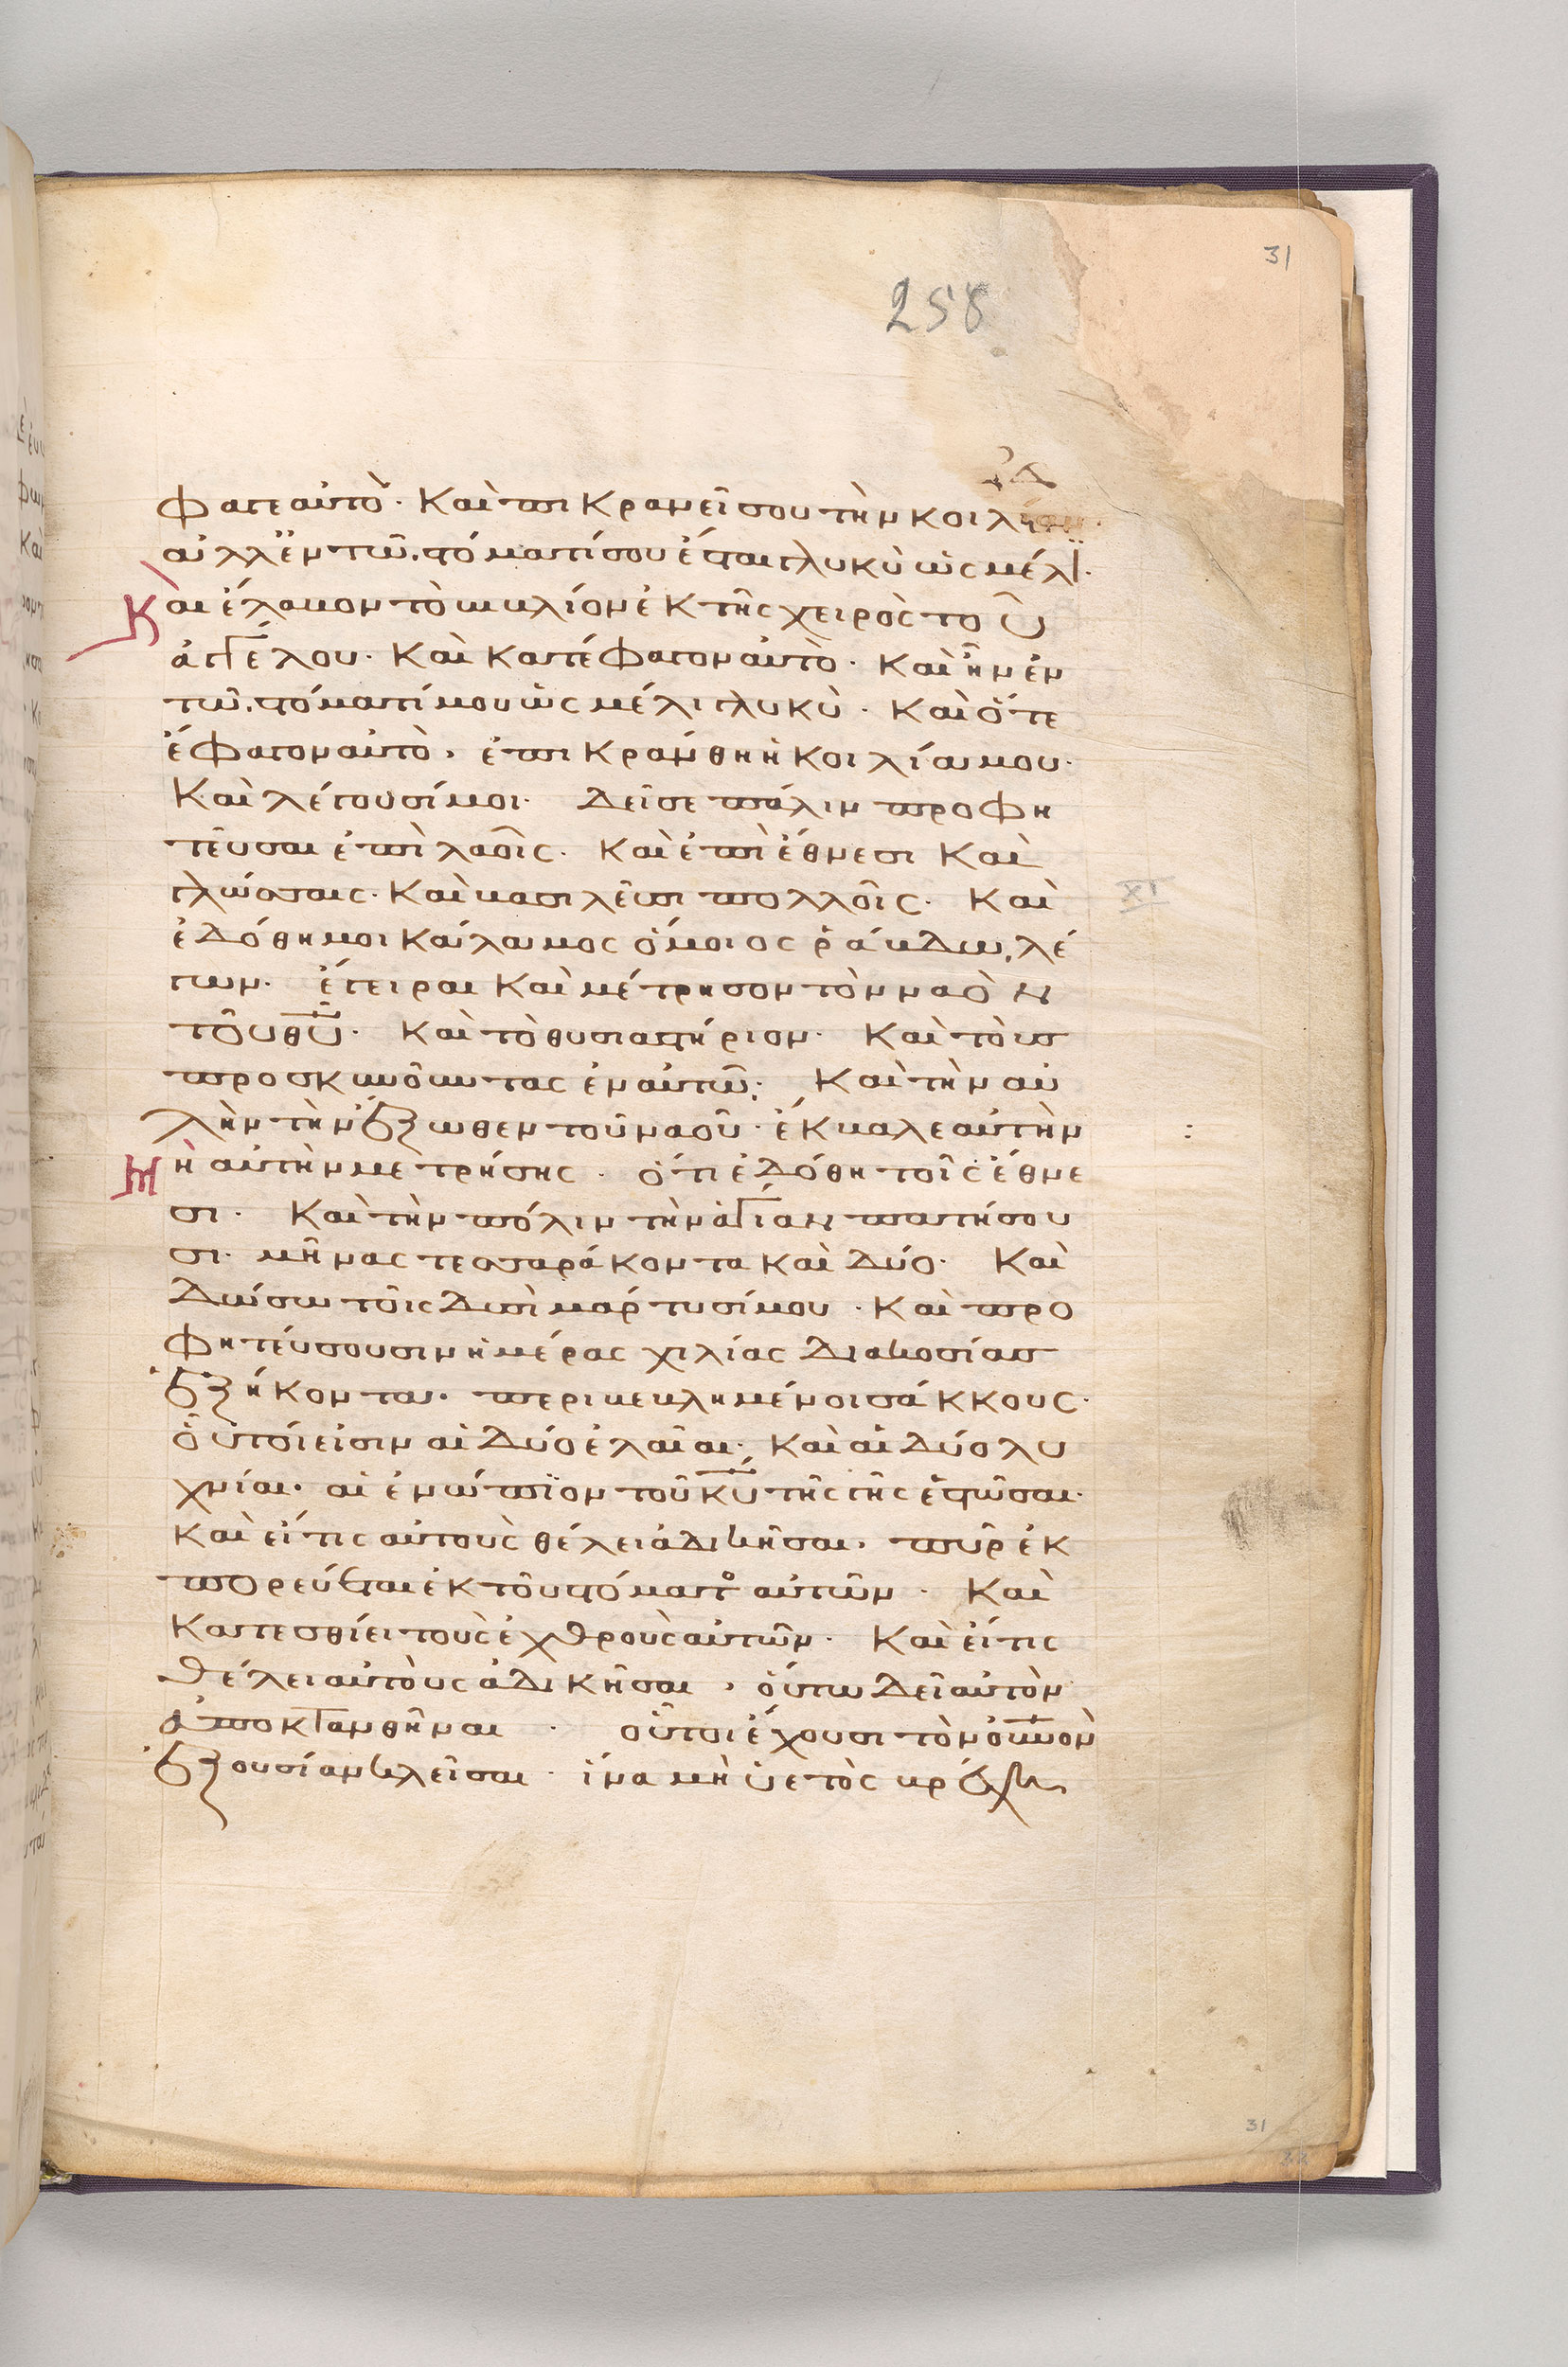 31
258
φαγε αὐτὸ· Καὶ πικρανεῖ σου τὴν κοιλίαν·
ἀλλ᾽ ἐν τῶ στόματί σου ἔσται γλυκὺ ὡς μέλι·
Και ἔλαβον τὸ βιβλίον ἐκ τῆς χειρὸς τοῦ
ἀγγέλου· Καὶ κατέφαγον αὐτὸ· Καὶ ἦν ἐν
τῶ στόματί μου ὡς μέλι γλυκὺ· Καὶ ὅτε
ἔφαγον αὐτὸ, ἐπικράνθη ἡ κοιλία μου·
Καὶ λέγουσί μοι· Δεῖ σε πάλιν προφη
τεῦσαι ἐπὶ λαοῖς· Καὶ ἐπὶ ἔθνεσι Καὶ
γλώσσαις· Καὶ βασιλεῦσι πολλοῖς· Καὶ
XI
ἐδόθη μοι κάλαμος ὅμοιος ῥάβδω, λέ
γων· ἔγειραι Καὶ μέτρησον τὸν ναὸν
τοῦ θ̅υ̅· Καὶ τὸ θυσιαστήριον· Καὶ τοὺς
προσκυνοῦντας ἐν αὐτῶ· Καὶ τὴν αὐ
λὴν τὴν ἔξωθεν τοῦ ναοῦ· ἔκβαλε αὐτὴν
Μὴ αὐτὴν μετρήσης· ὅτι ἐδόθη τοῖς ἔθνε
σι· Καὶ τὴν πόλιν τὴν ἁγίαν πατήσου
σι· μῆνας τεσσαράκοντα Καὶ δύο· Καὶ
δώσω τοῖς δυσὶ μάρτυσί μου· Καὶ προ
φητεύσουσιν ἡμέρας χιλίας διακοσίας
ἑξήκοντα· περιβεβλημένοι σάκκους·
οὗτοί εἰσιν αἱ δύο ἐλαῖαι· Καὶ αἱ δύο λυ
χνίαι· αἱ ἐνώπϊον τοῦ κ̅υ̅ τῆς γῆς ἑστῶσαι·
Καὶ εἴ τις αὐτοὺς θέλει ἀδικῆσαι, πῦρ ἐκ
πορεύεται ἐκ τοῦ στόματο αὐτῶν· Καὶ
Κατεσθίει τοὺς ἐχθροὺς αὐτῶν· Καὶ εἴ τις
θέλει αὐτοὺς ἀδικῆσαι, οὕτω δεῖ αὐτὸν
ἀποκτανθῆναι· οὗτοι ἔχουσι τὸν ο̅υ̅νον
ἐξουσίαν κλεῖσαι· ἵνα μὴ ὑετὸς βρέχη
31